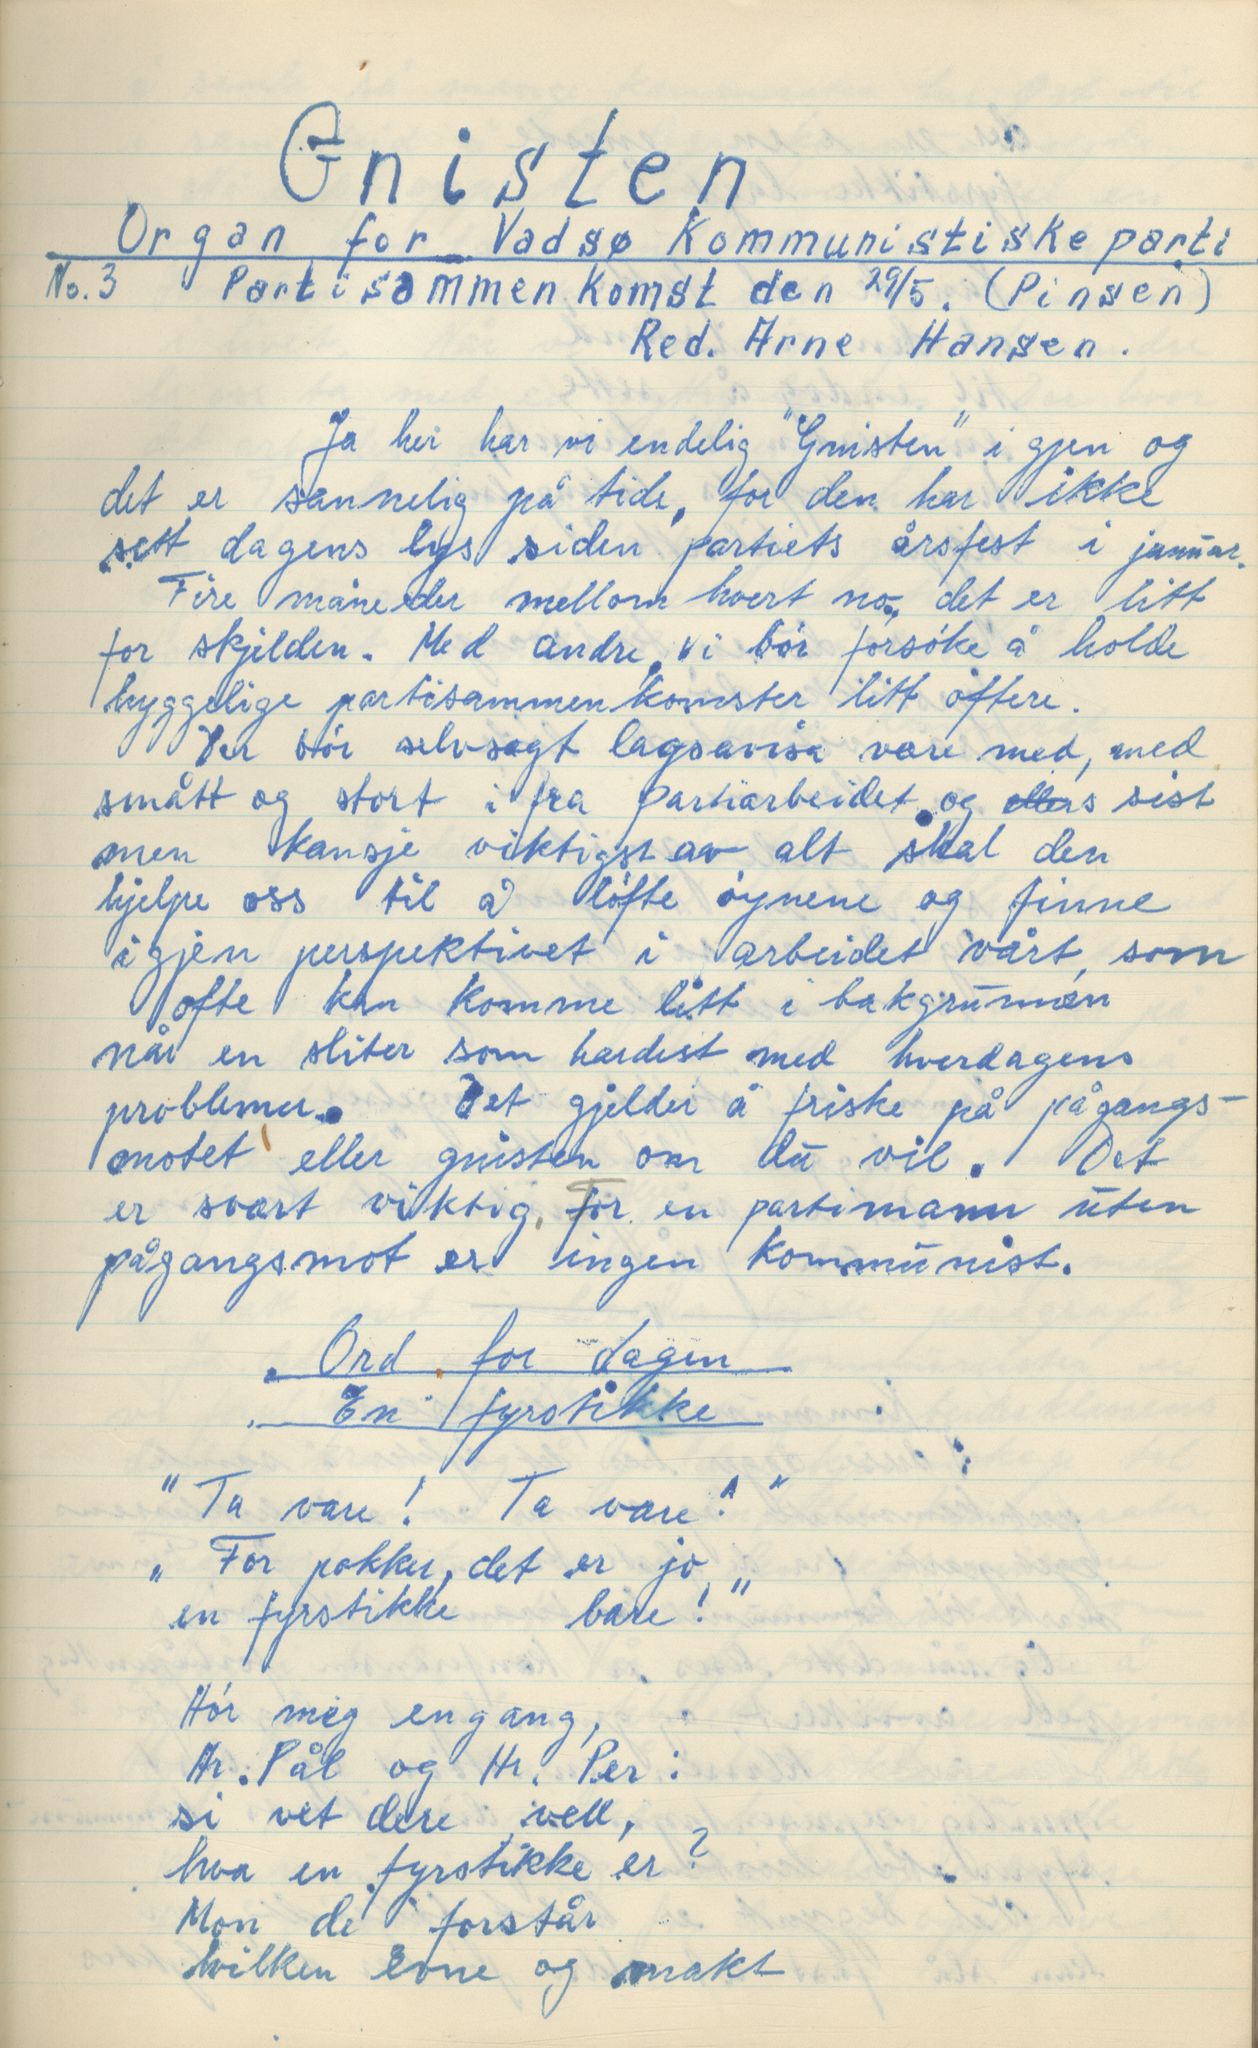 Gnisten
Organ for Vadsø Kommunistiske parti
No. 3 Partisammenkomst den 29/5. (Pinsen)
Red. Arne Hansen.
Ja her har vi endelig "Gnisten" i gjen og
det er sannelig på tide, for den har ikke
sett dagens lys siden partiets årsfest i januar.
Fire måneder mellom hvert no., det er litt
for skjelden. Med andre, vi bór forsóke å holde
hyggelige partisammenkomster litt oftere.
Der bór selvsagt lagsavisa være med, med
smått og stort i fra partiarbeidet og sist
men kansje viktigst av alt skal den
hjelpe oss til å lófte óynene og finne
igjen perspektivet i arbeidet vårt, som
ofte kan komme litt i bakgrunnen
når en sliter som hardest med hverdagens
problemer. Det gjelder å friske på pågangs-
motet eller gnisten om du vil. Det
er svært viktig, For en partimann uten
pågangsmot er ingen kommunist.
Ord for dagen
En fyrstikke
"Ta vare! Ta vare!"
"For pokker, det er jo
en fyrstikke bare!"
Hór meg engang,
Hr. Pål og Hr. Per:
si vet dere vell,
hva en fyrstikke er?
Mon de forstår
hvilken evne og makt